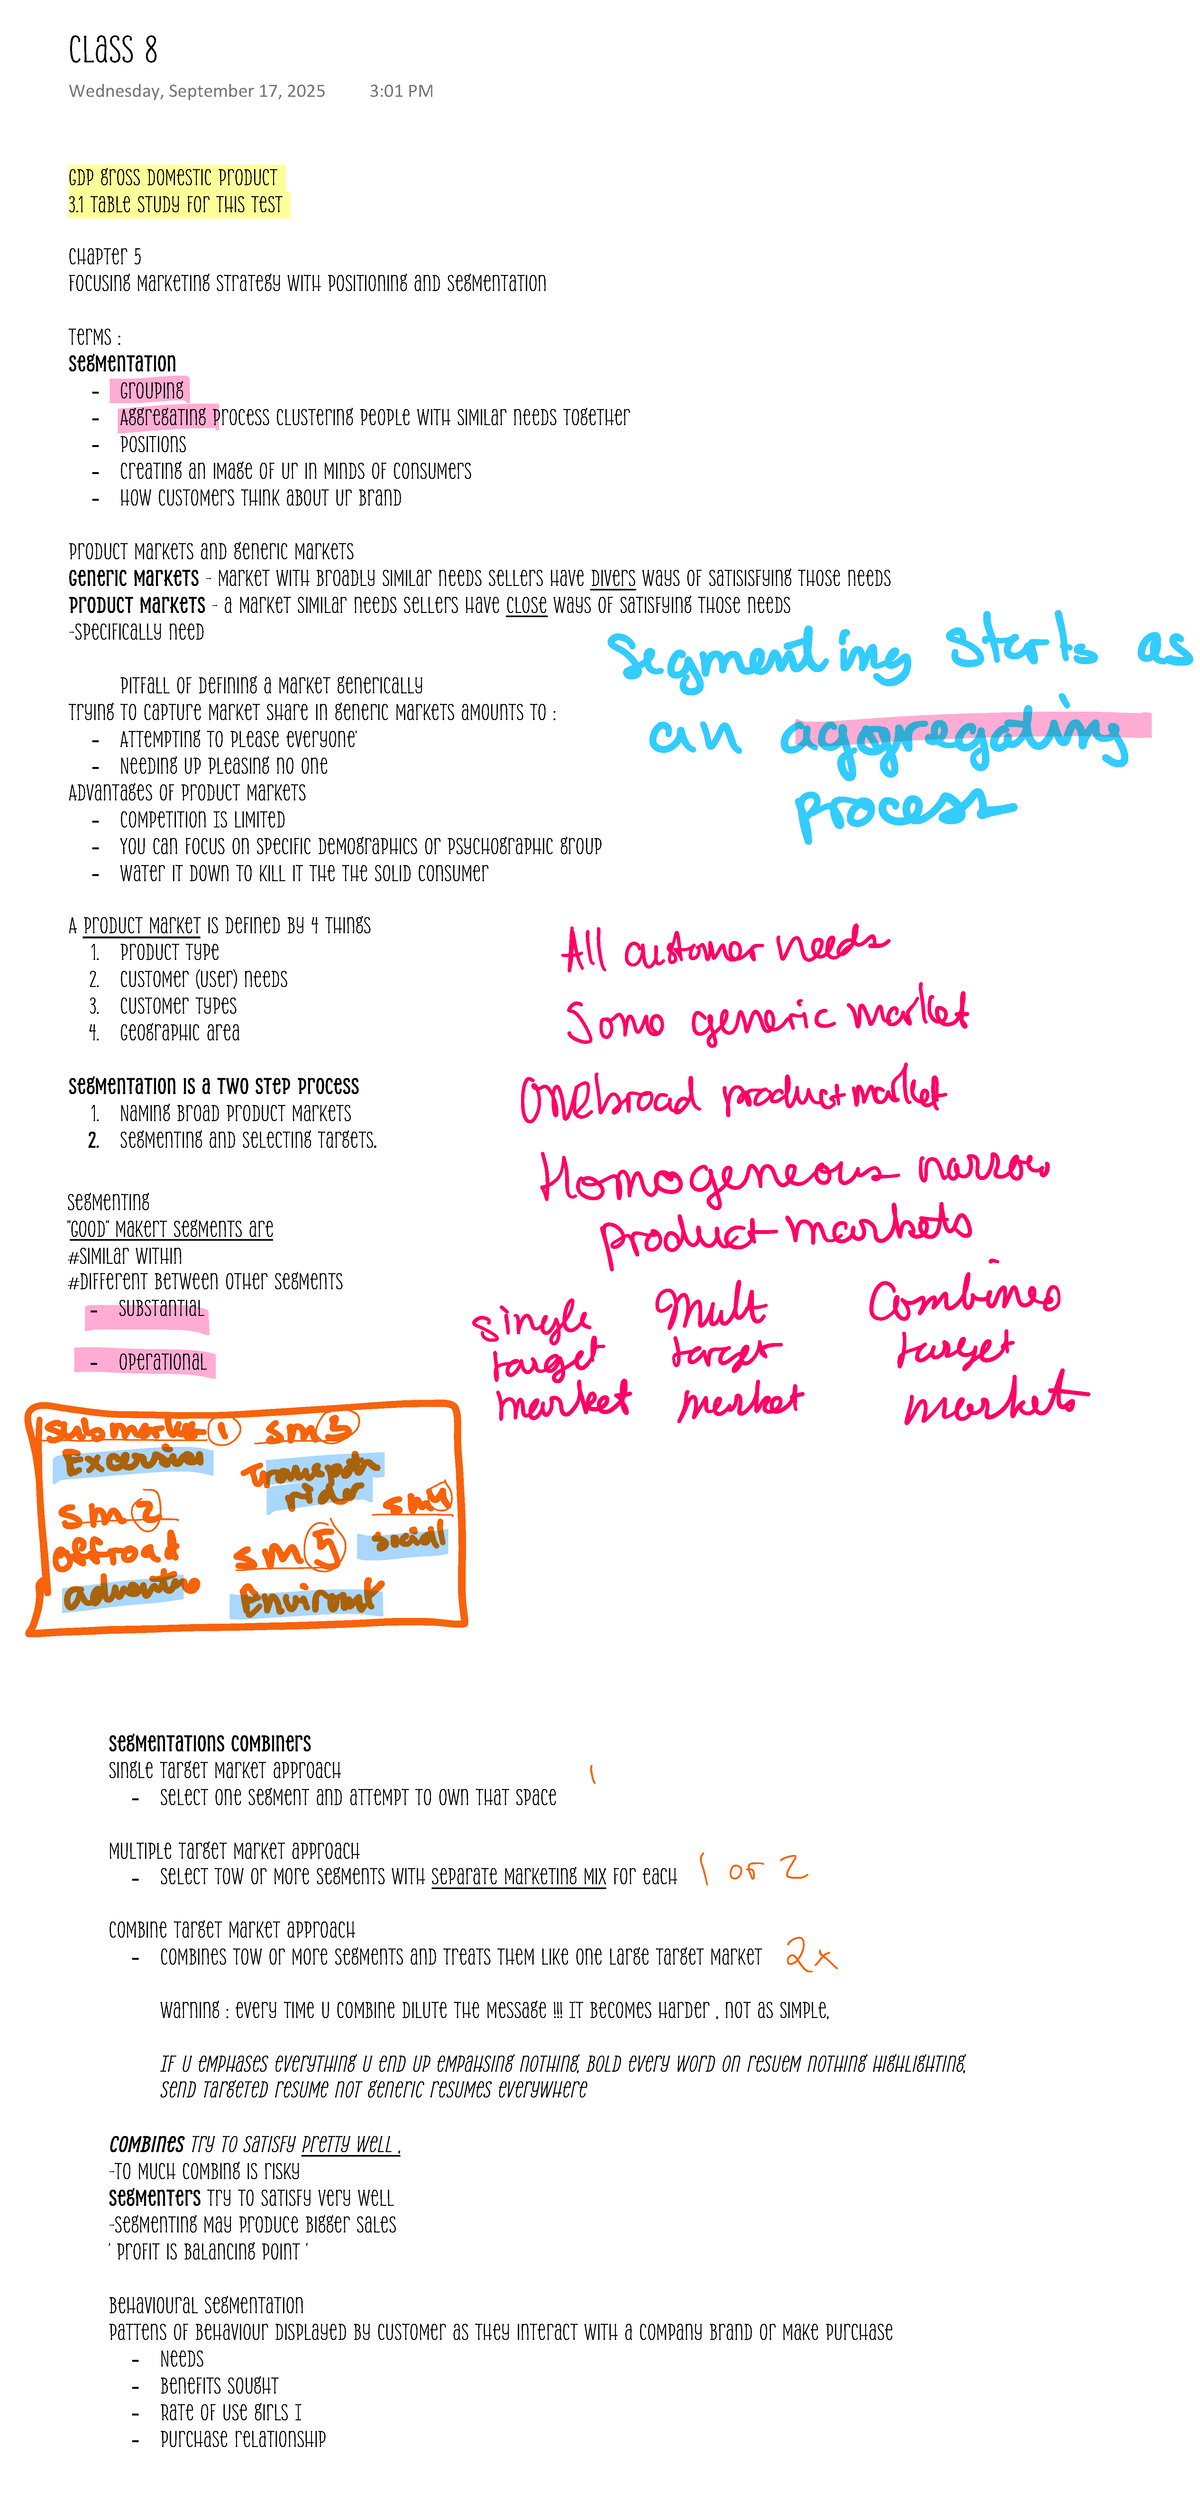 Class 8
Wednesday, September 17, 2025 3:01 PM
GDP gross domestic product
3.1 table study for this test
Chapter 5
Focusing marketing strategy with positioning and segmentation
Terms :
Segmentation
- Grouping
- Aggregating process clustering people with similar needs together
- Positions
- Creating an image of ur in minds of consumers
- How customers think about ur brand
Product markets and generic markets
Generic markets - market with broadly similar needs sellers have divers ways of satisisfying those needs
Product markets - a market similar needs sellers have close ways of satisfying those needs
-specifically need
Segmenting starts as
an aggregating
process
Pitfall of defining a market generically
Trying to capture market share in generic markets amounts to :
- Attempting to please everyone'
- Needing up pleasing no one
Advantages of product markets
- Competition is limited
- You can focus on specific demographics or psychographic group
- Water it down to kill it the the solid consumer
A product market is defined by 4 things
1. Product type
2. Customer (user) needs
3. Customer types
4. Geographic area
All customer needs
Some generic market
One broad product market
Homogeneous narrow
product markets
Single target market
Mult target market
Combined target markets
Segmentation is a two step process
1. Naming broad product markets
2. Segmenting and selecting targets.
Segmenting
"Good" makert segments are
#similar within
#different between other segments
- Substantial
- Operational
Submarke 1
sm 3
Transport
rider
sm 2
offroad
sm 4
social
sm 5
Segmentations combiners
Single target market approach
- Select one segment and attempt to own that space
1
Multiple target market approach
- Select tow or more segments with separate marketing mix for each
1 or 2
Combine target market approach
- Combines tow or more segments and treats them like one large target market
2x
Warning : every time u combine dilute the message !!! It becomes harder , not as simple,
If u emphases everything u end up empahsing nothing, bold every word on resuem nothing highlighting,
send targeted resume not generic resumes everywhere
Combines try to satisfy pretty well ,
-to much combing is risky
Segmenters try to satisfy very well
-segmenting may produce bigger sales
' profit is balancing point '
Behavioural segmentation
Pattens of behaviour displayed by customer as they interact with a company brand or make purchase
- Needs
- Benefits sought
- Rate of use girls I
- Purchase relationship